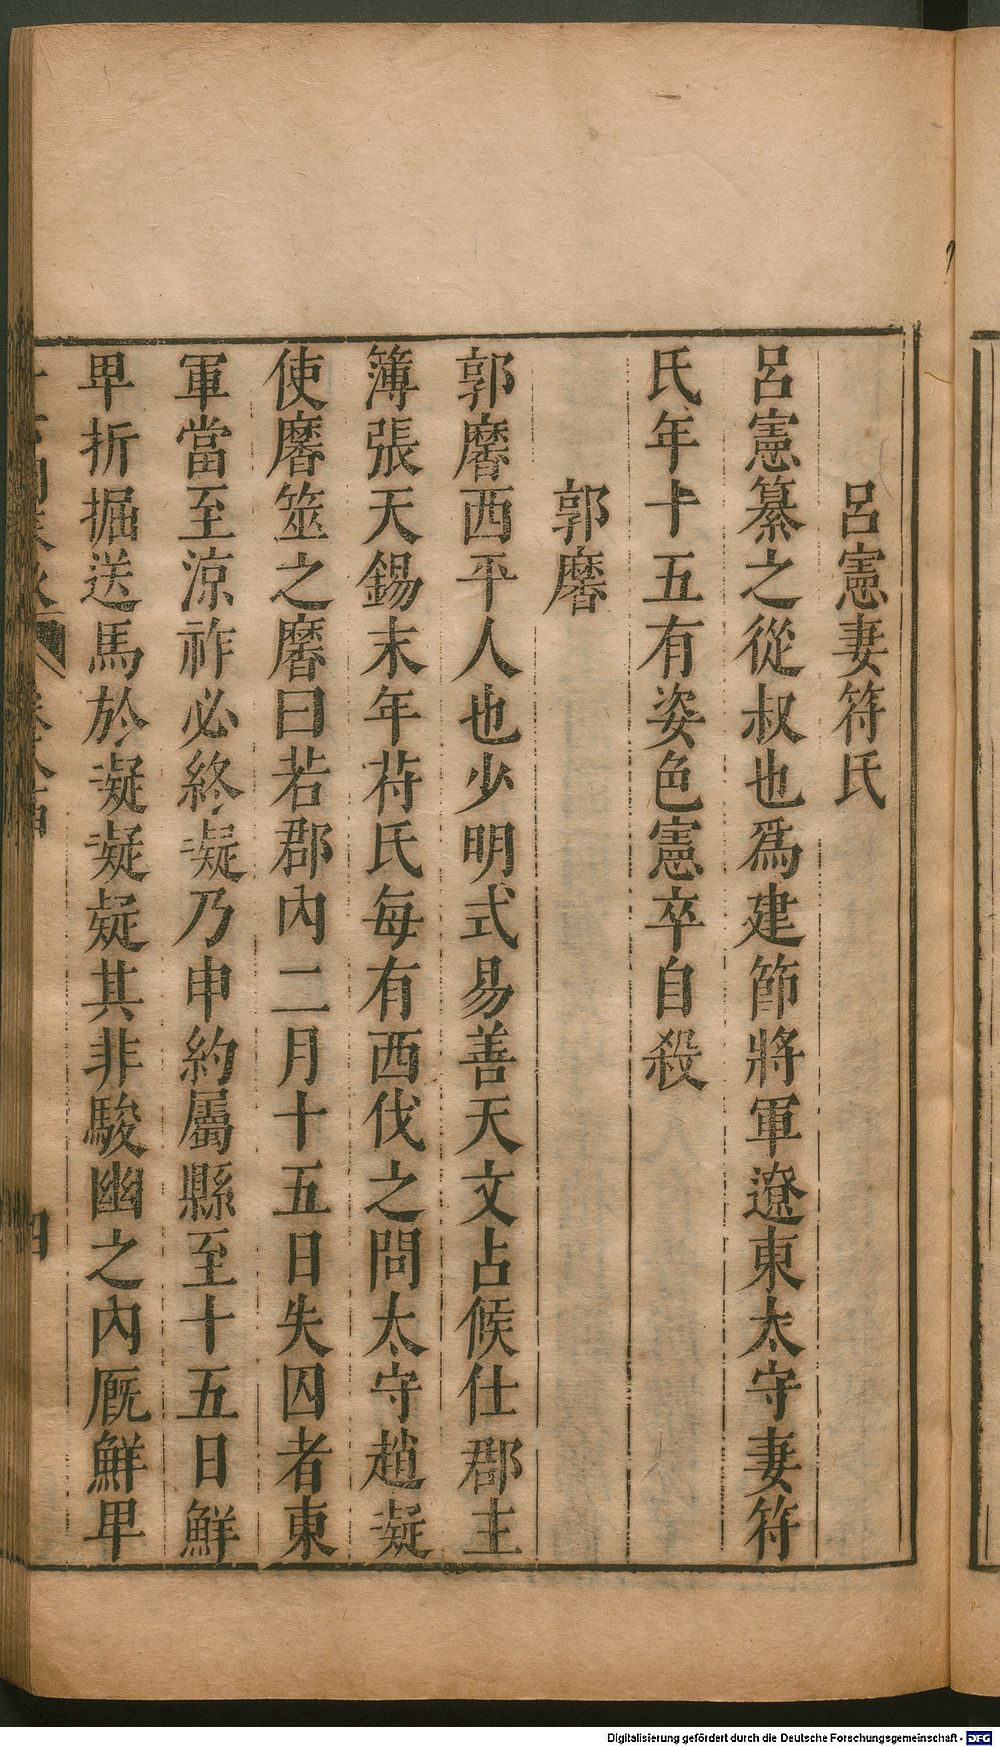 呂憲妻符氏
呂憲纂之從叔也爲建節將軍遼東太守妻符
氏年十五有姿色憲卒自殺
郭黁
郭黁西平人也少明式易善天文占候仕郡主
簿張天錫末年苻氏每有西伐之問太守趙凝
使黁筮之黁曰若郡内二月十五日失囚者東
軍當至涼祚必終凝乃申約屬縣至十五日鮮
卑折掘送馬於凝凝疑其非駿幽之内厩鮮卑
Digitalisierung gefördert durch die Deutsche Forschungsgemeinschaft - DFG